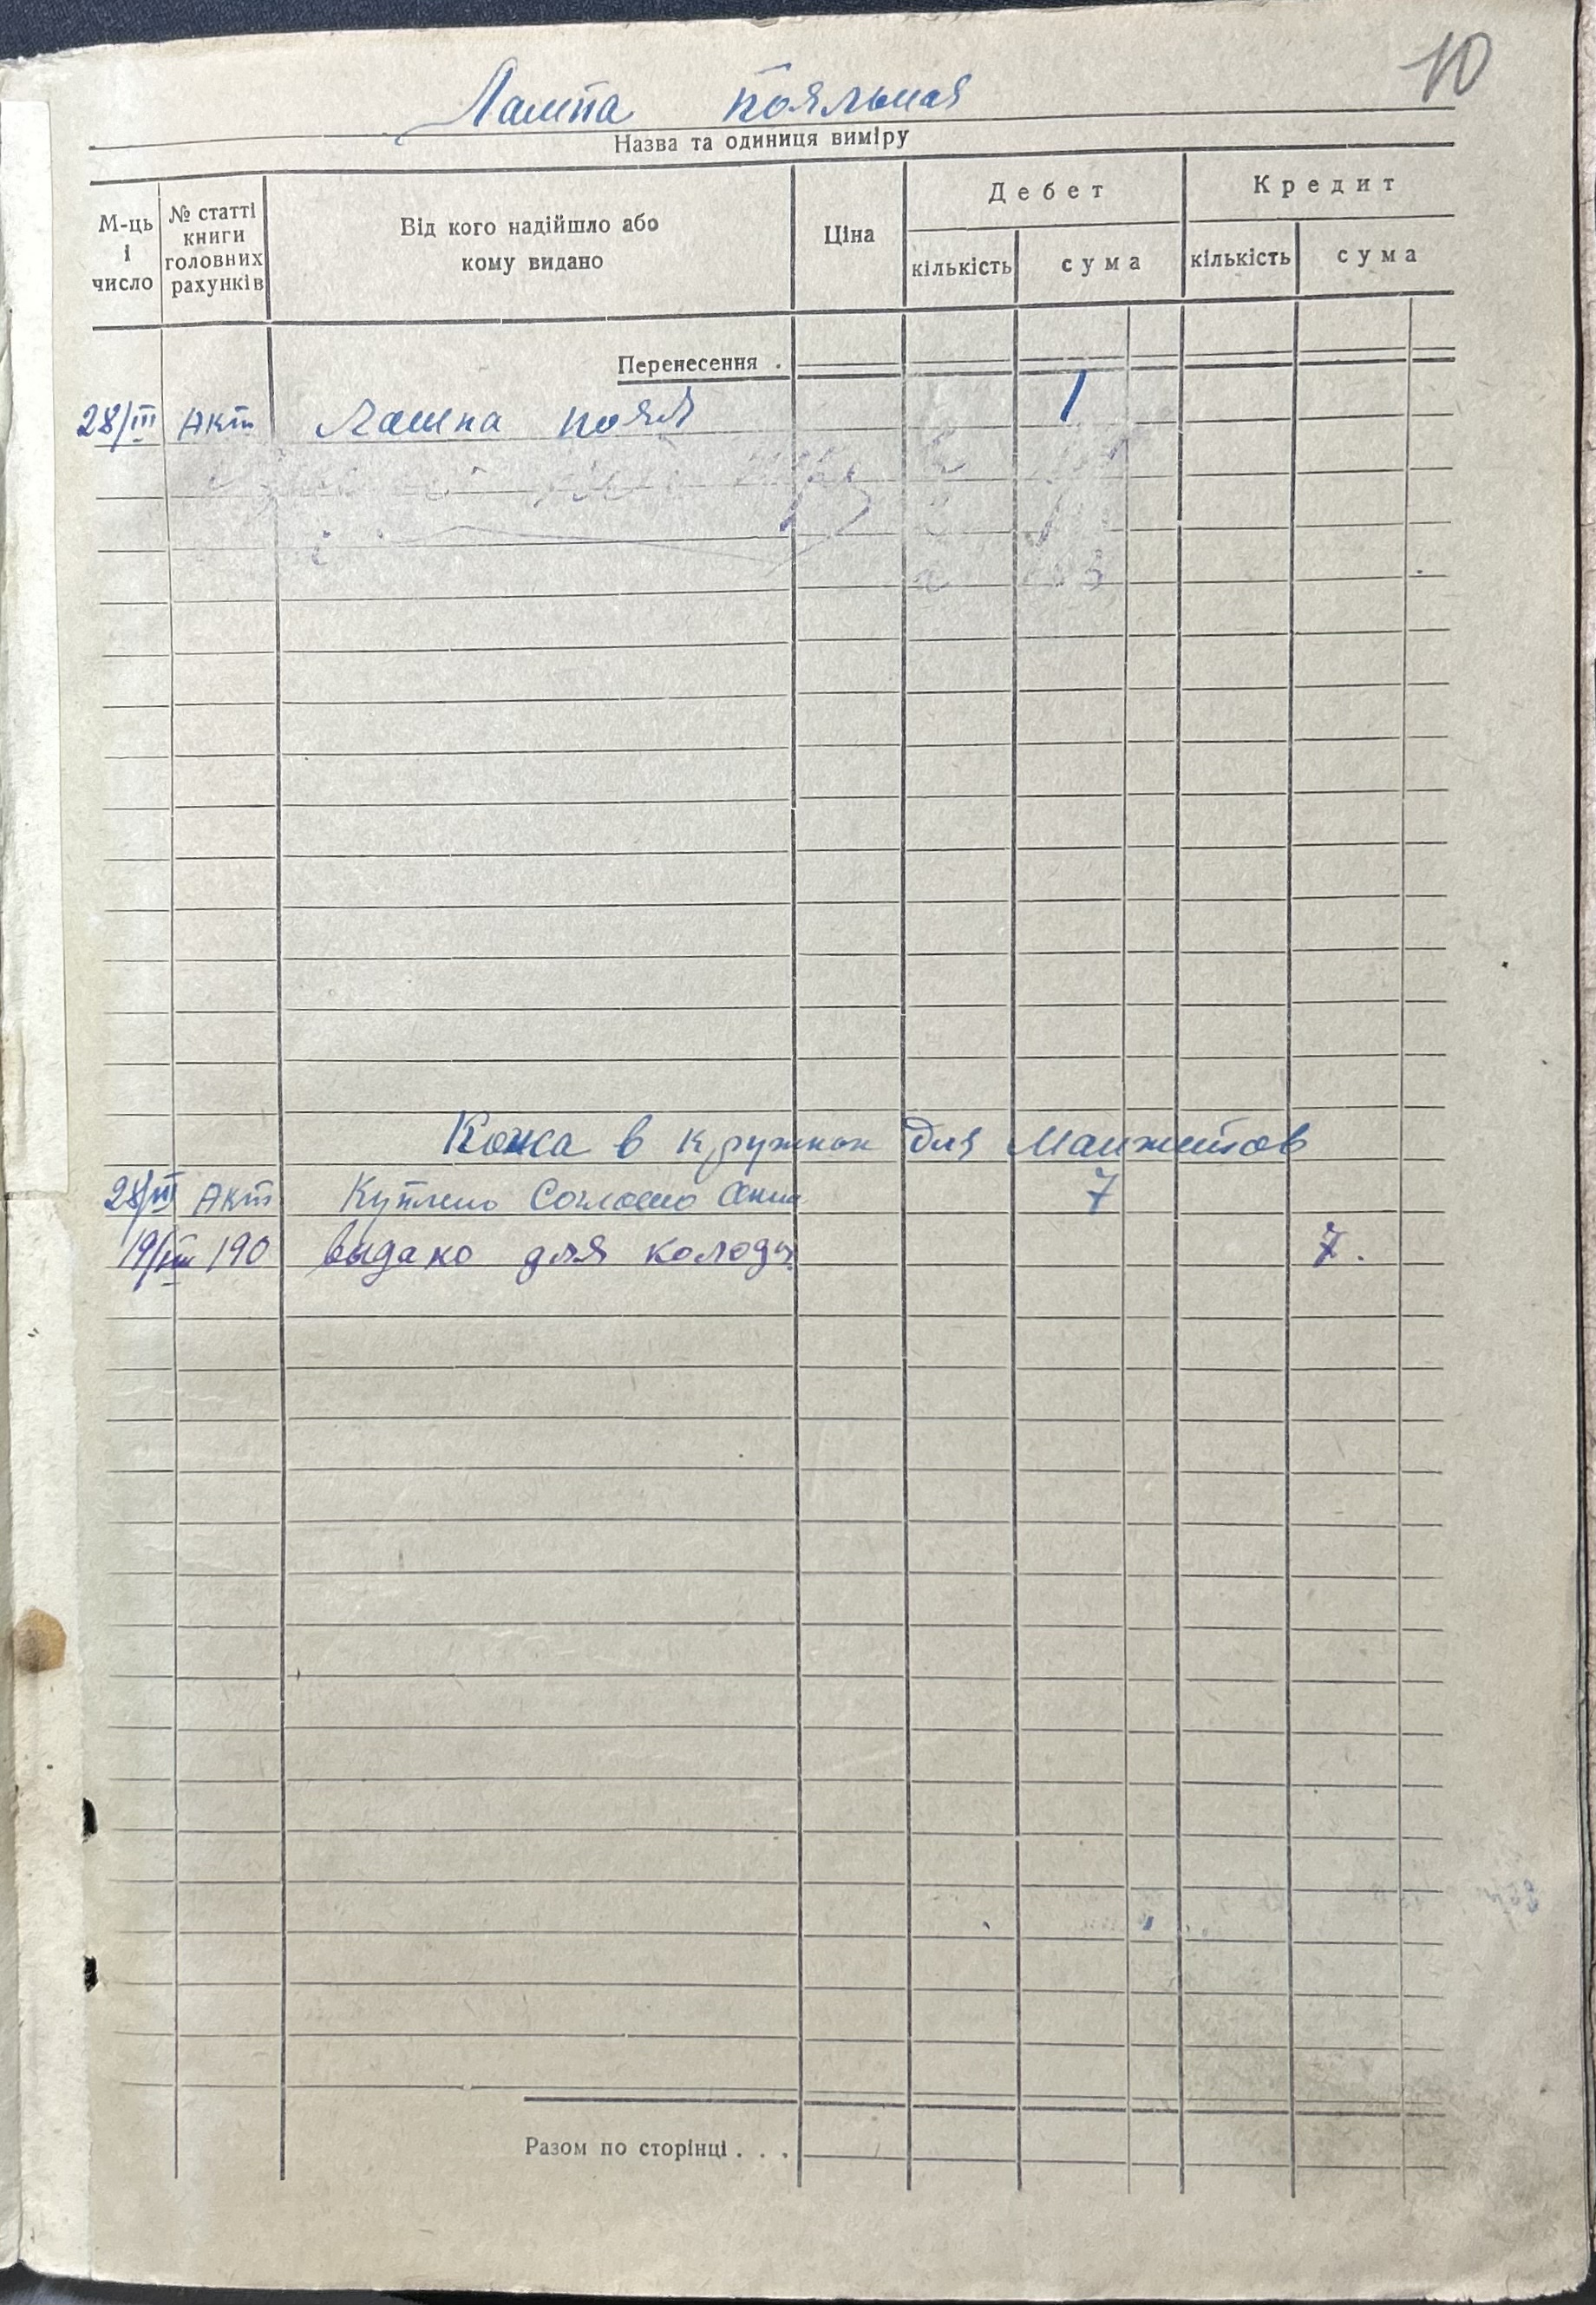 10
Лампа пояльная
Назва та одиниця виміру
М-ць і число
№ статті книги головних рахунків
Від кого надійшло або кому видано
Ціна
Дебет
Кредит
кількість
сума
кількість
сума
Перенесення .
28/III Акт Лампа поял 1
Кожа в кружках для Манжетов
28/III Акт Куплено Согласно Акта 7
19/VIII 190 выдано для колодц. 7.
Разом по сторінці . . .